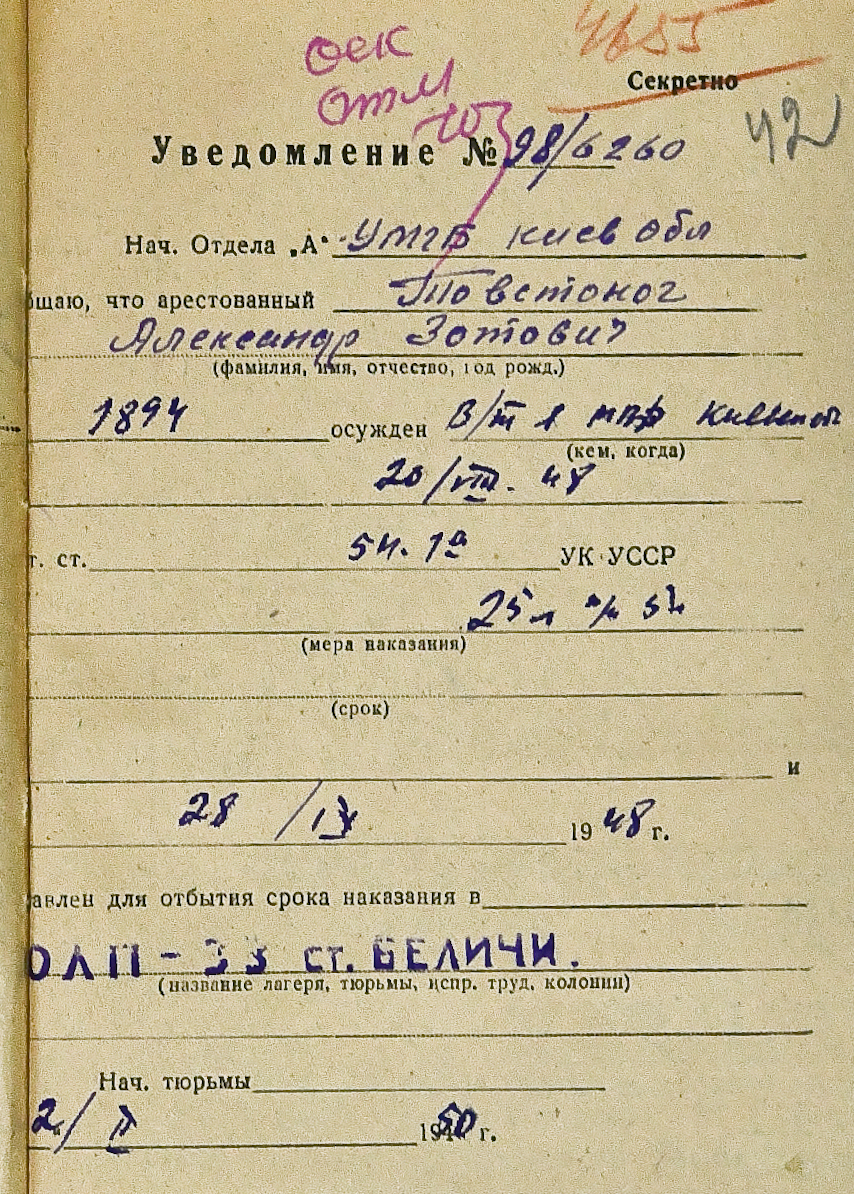 4655
оск
отм
Секретно
42
Уведомление № 98/6260
Нач. Отдела „А“ УМГБ киев обл
бщаю, что арестованный Товстоног
Александр Зотович
(фамилия, имя, отчество, год рожд.)
1894 осужден В/т
(кем, когда)
20/VIII. 48
т. ст. 54. 1а УК УССР
25 л
(мера наказания)
(срок)
и
28 /IX 1948 г.
авлен для отбытия срока наказания в
ОЛП - 33 ст. БЕЛИЧИ.
(название лагеря, тюрьмы, испр. труд, колонии)
Нач. тюрьмы
2/II 1950 г.